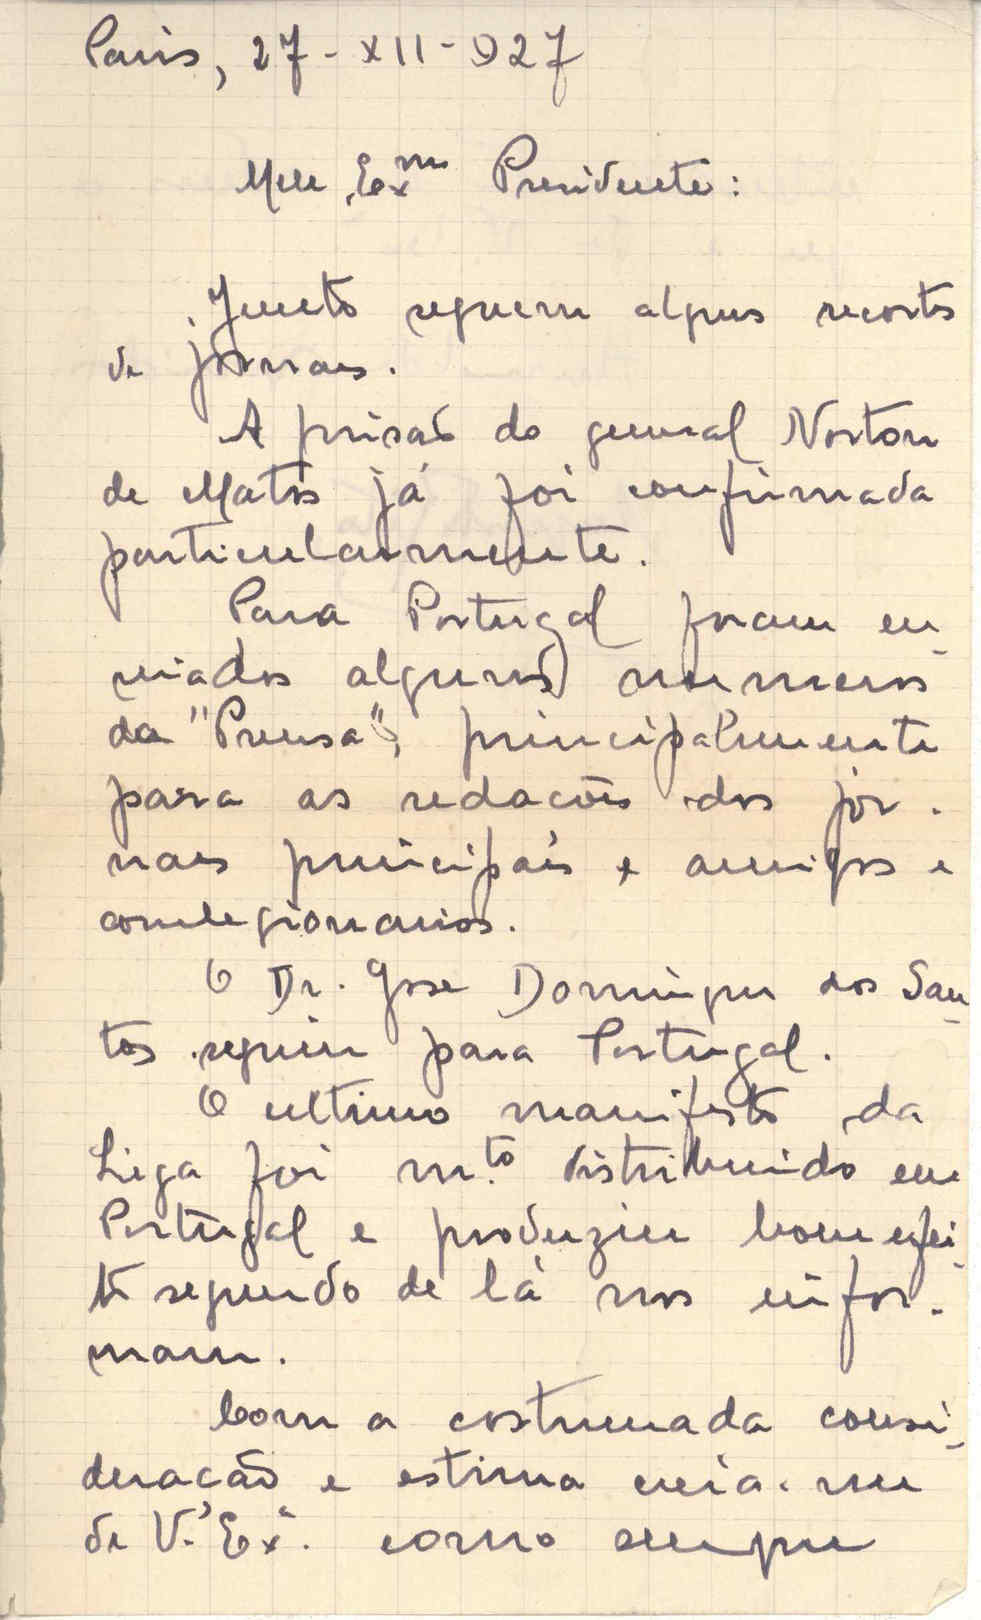 Paris, 27-XII-927
Meu Exmo Presidente:
Junto seguem alguns recortes
de jornais.
A prisão do general Norton
de Matos já foi confirmada
particularmente.
Para Portugal foram en-
viados alguns numeros
da "Prensa", principalmente
para as redacões dos jor-
nais principais e amigos e
correlegionarios.
O Dr. José Domingues dos San-
tos seguiu para Portugal.
O ultimo manifesto da
Liga foi m.to distribuido em
Portugal e produziu bom efei-
to segundo de lá nos infor-
mam.
Com a costumada consi-
deracão e estima creia-me
de V.ª Ex.ª como sempre